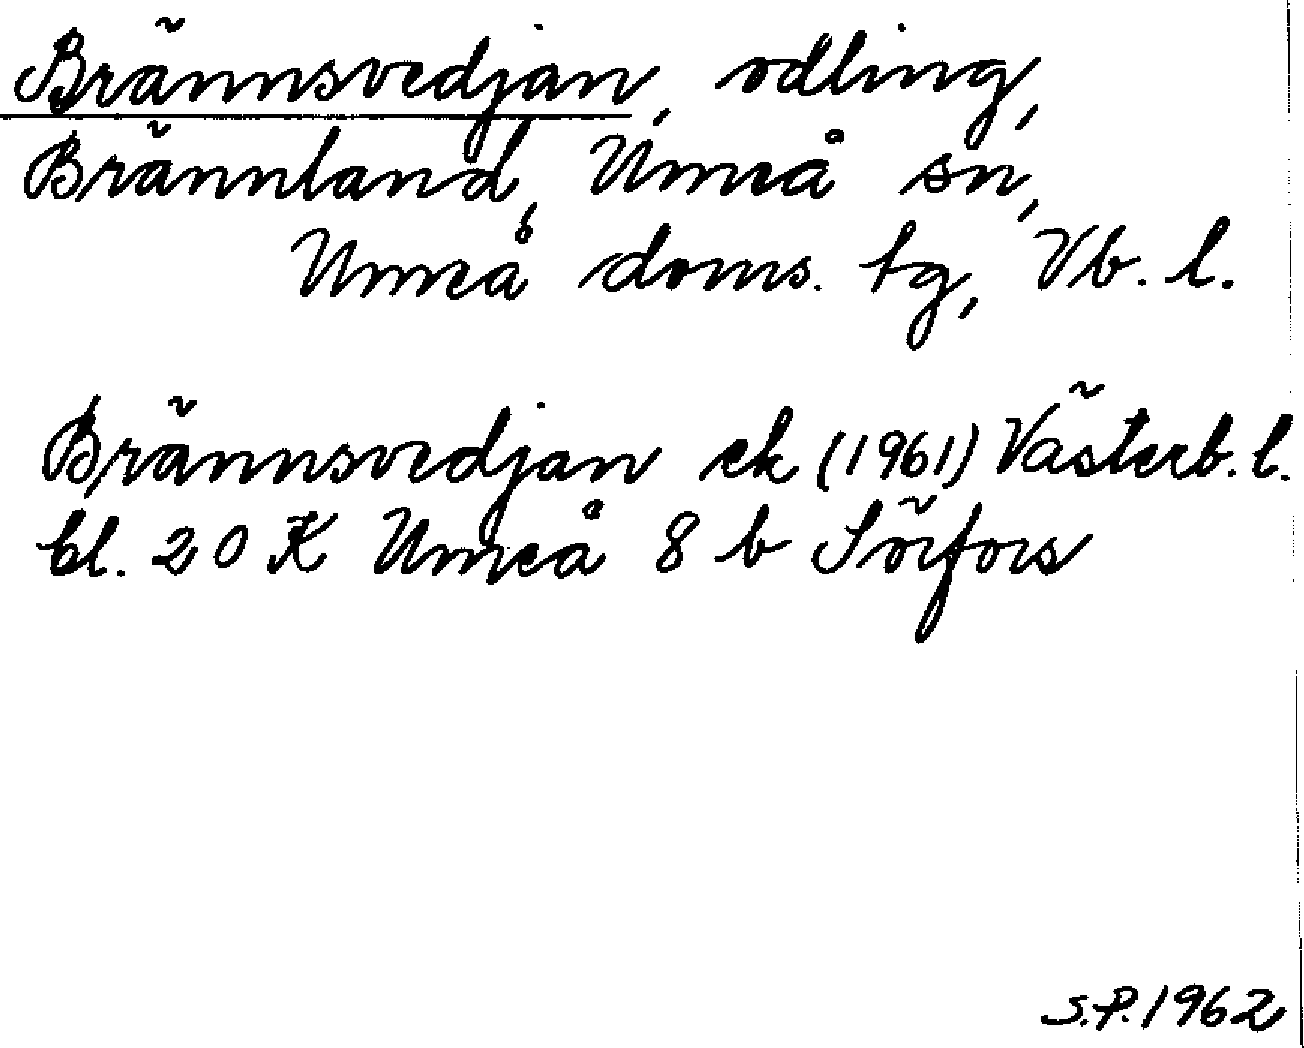 Brännsvedjan, odling,
Brännland, Umeå sn,
Umeå doms. tg, Vb. l.
Brännsvedjan ek (1961) Västerb. l.
bl. 20 K Umeå 8 b Sörfors
S.P. 1962